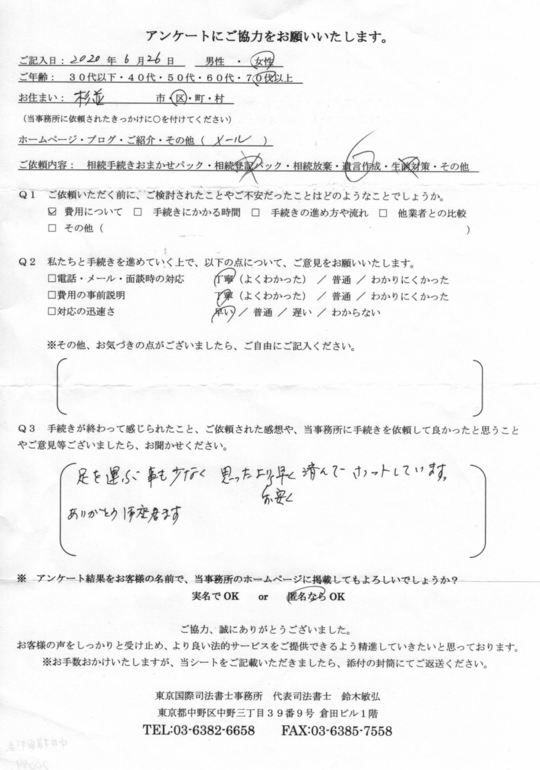 アンケートにご協力をお願いいたします。
ご記入日：2020年 6月26日 男性 ・ 女性
ご年齢： 30代以下・40代・50代・60代・70代以上
お住まい： 杉並 市・区・町・村
（当事務所に依頼されたきっかけに○を付けてください）
ホームページ・ブログ・ご紹介・その他（ メール ）
ご依頼内容： 相続手続きおまかせパック・相続登記パック・相続放棄・遺言作成・生前対策・その他
Q1 ご依頼いただく前に、ご検討されたことやご不安だったことはどのようなことでしょうか。
☑ 費用について □ 手続きにかかる時間 □ 手続きの進め方や流れ □ 他業者との比較
□ その他（ ）
Q2 私たちと手続きを進めていく上で、以下の点について、ご意見をお願いいたします。
□電話・メール・面談時の対応 丁寧（よくわかった） ／ 普通 ／ わかりにくかった
□費用の事前説明 丁寧（よくわかった） ／ 普通 ／ わかりにくかった
□対応の迅速さ 早い ／ 普通 ／ 遅い ／ わからない
※その他、お気づきの点がございましたら、ご自由にご記入ください。
Q3 手続きが終わって感じられたこと、ご依頼された感想や、当事務所に手続きを依頼して良かったと思うこと
やご意見等ございましたら、お聞かせください。
足を運ぶ事も少なく 思ったより早く 済んで ホットしています。
安く
ありがとう御座居ます
※ アンケート結果をお客様の名前で、当事務所のホームページに掲載してもよろしいでしょうか？
実名でOK or 匿名ならOK
ご協力、誠にありがとうございました。
お客様の声をしっかりと受け止め、より良い法的サービスをご提供できるよう精進していきたいと思っております。
※お手数おかけいたしますが、当シートをご記載いただきましたら、添付の封筒にてご返送ください。
東京国際司法書士事務所 代表司法書士 鈴木敏弘
東京都中野区中野三丁目39番9号 倉田ビル1階
TEL:03-6382-6658 FAX:03-6385-7558